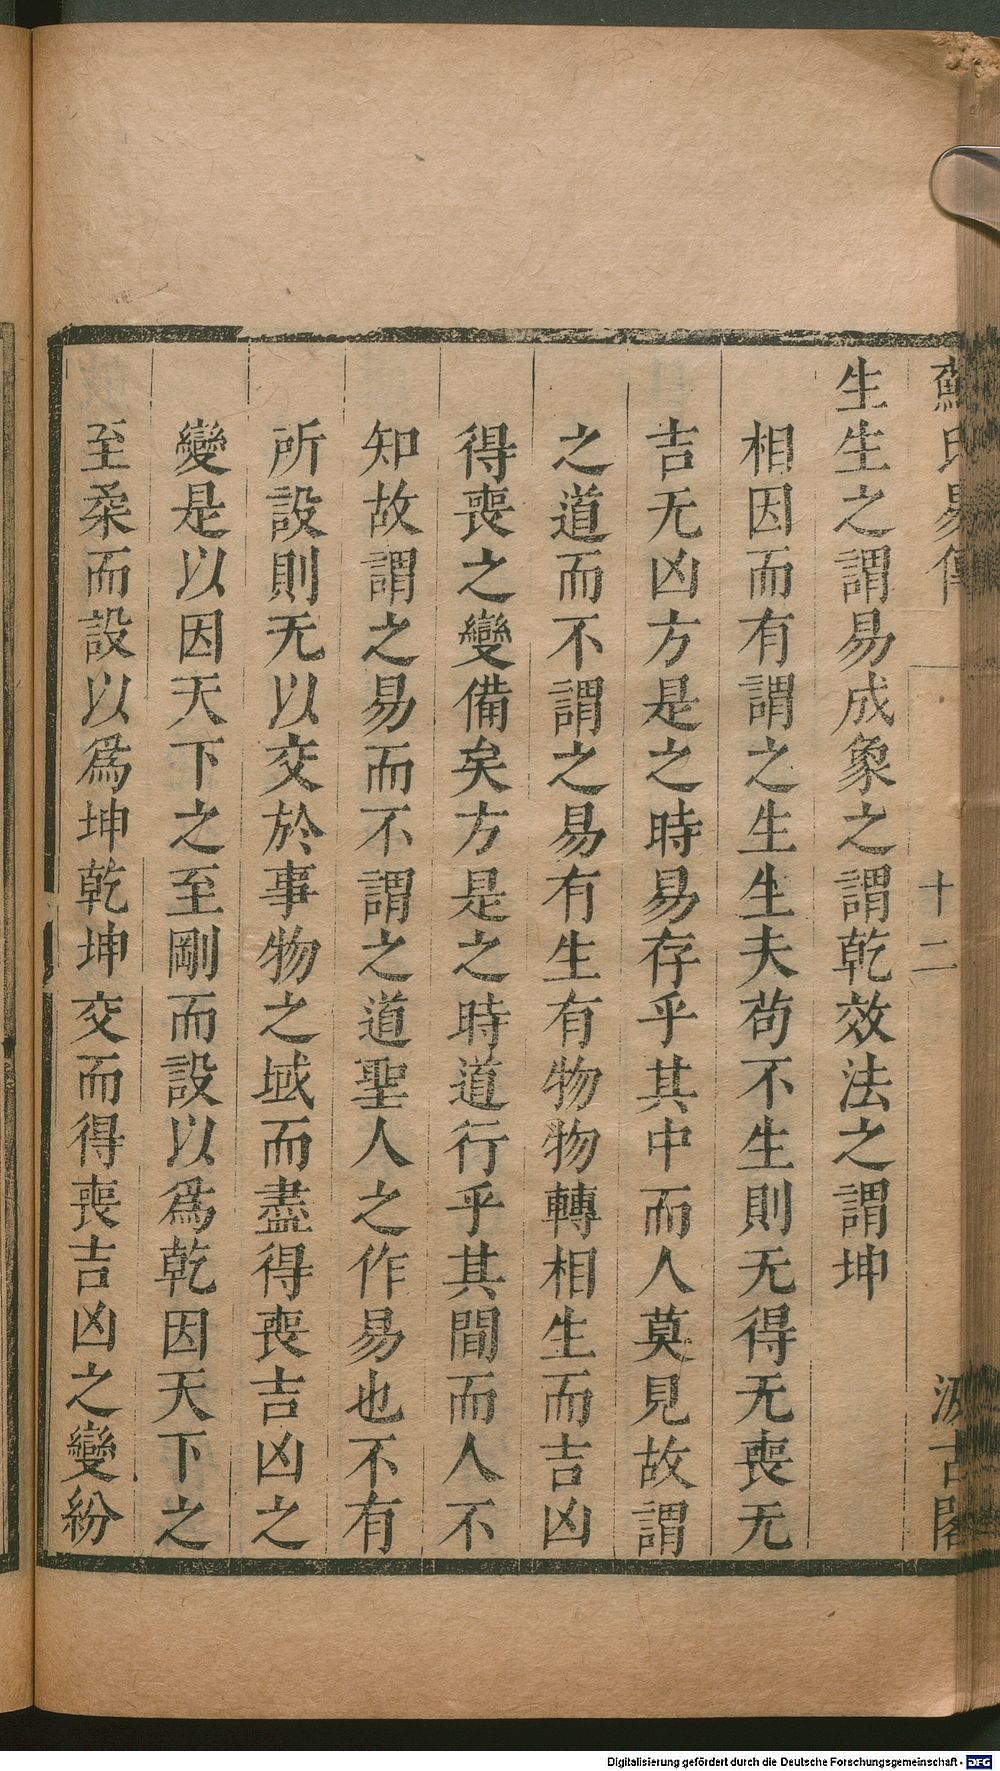 蘇氏易傳
十二
汲古閣
生生之謂易成象之謂乾效法之謂坤
相因而有謂之生生夫苟不生則无得无喪无
吉无凶方是之時易存乎其中而人莫見故謂
之道而不謂之易有生有物物轉相生而吉凶
得喪之變備矣方是之時道行乎其間而人不
知故謂之易而不謂之道聖人之作易也不有
所設則无以交於事物之域而盡得喪吉凶之
變是以因天下之至剛而設以爲乾因天下之
至柔而設以爲坤乾坤交而得喪吉凶之變紛
Digitalisierung gefördert durch die Deutsche Forschungsgemeinschaft - DFG